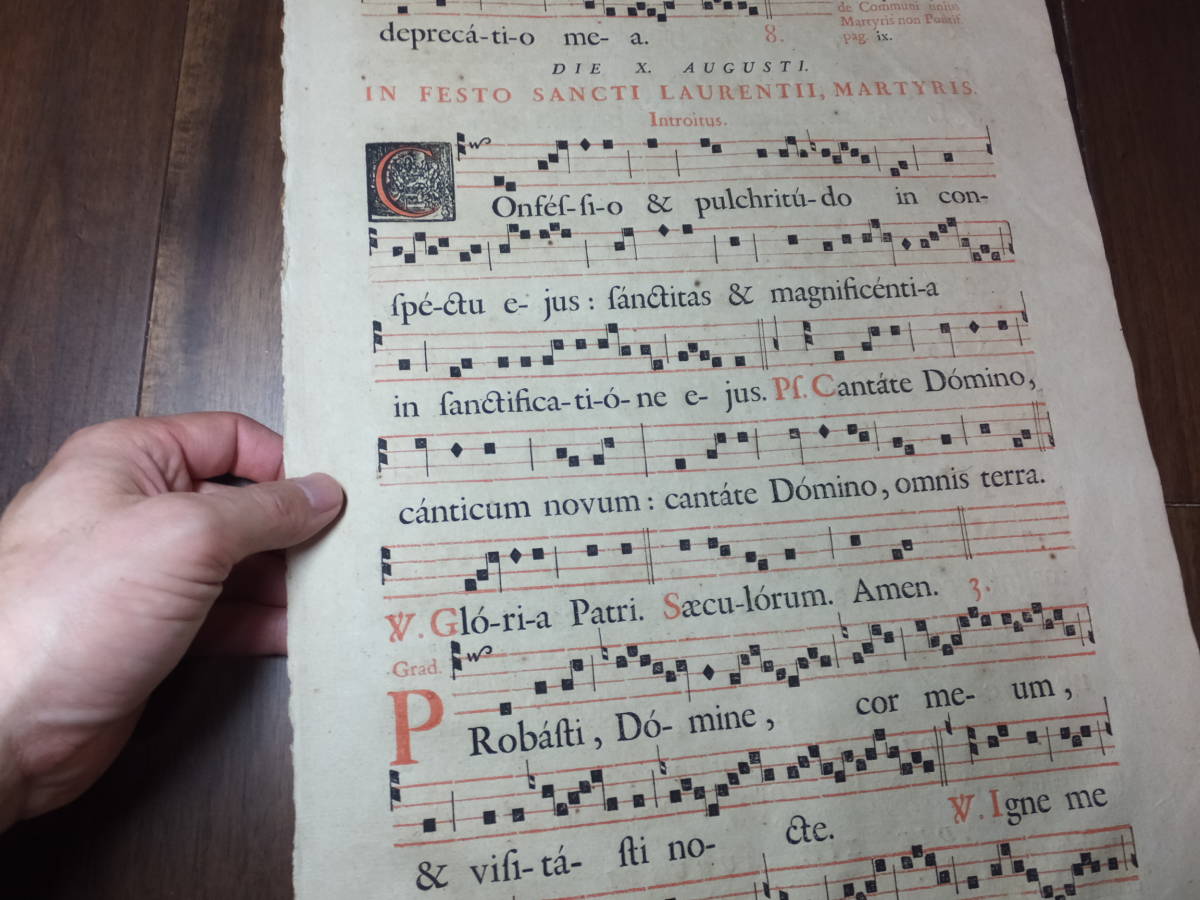 de Communi unius
Martyris non Pontif.
pag. ix.
deprecá-ti-o me- a. 8.
DIE X. AUGUSTI.
IN FESTO SANCTI LAURENTII, MARTYRIS.
Introitus.
COnféſ-ſi-o & pulchritú-do in con-
ſpé-ctu e- jus : ſánctitas & magnificénti-a
in ſanctifica-ti-ó-ne e- jus. Pſ. Cantáte Dómino,
cánticum novum : cantáte Dómino, omnis terra.
℣. Gló-ri-a Patri. Sæcu-lórum. Amen. 3.
Grad.
PRobáſti, Dó- mine, cor me- um,
& viſi-tá- ſti no- cte. ℣. Igne me